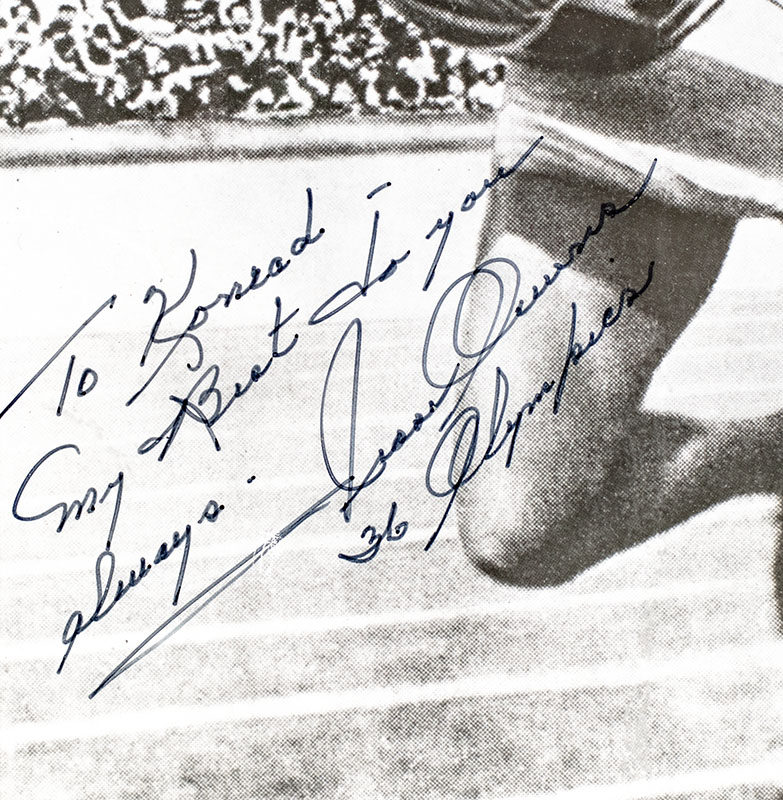 To Konrad -
My Best to you
always.
Jesse Owens
36 Olympics